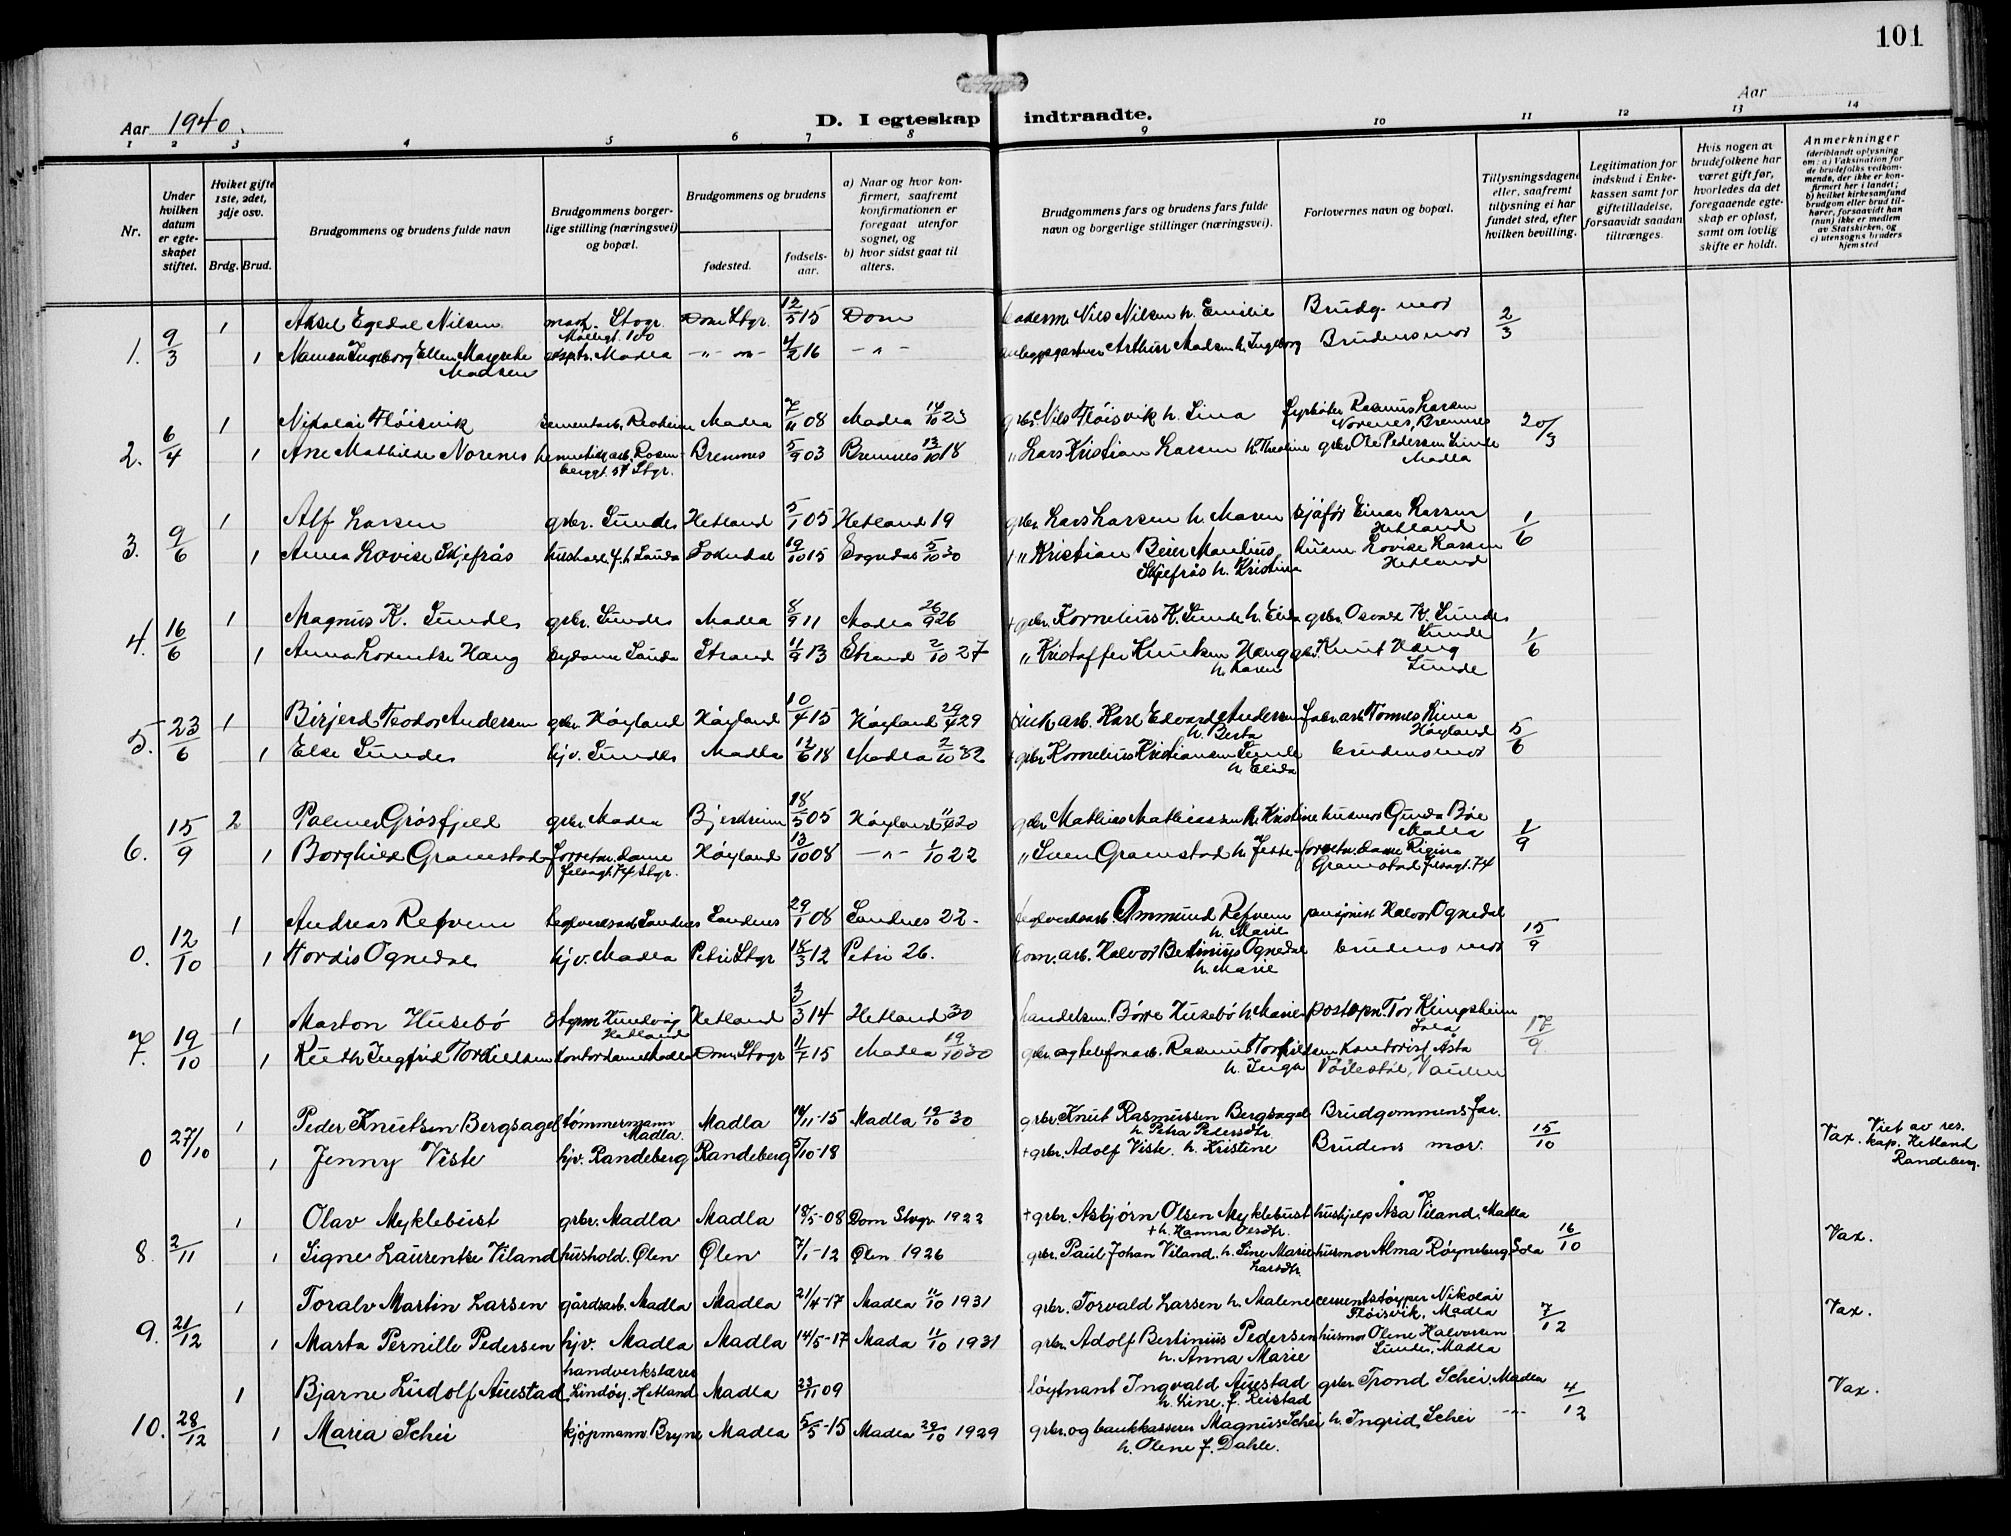 101
Aar 1940.
D. I egteskap indtraadte.
Aar
1 2 3 4 5 6 7 8 9 10 11 12 13 14
Nr.
Under hvilken datum er egteskapet stiftet.
Hviket gifte 1ste, 2det, 3dje osv.
Brdg. Brud.
Brudgommens og brudens fulde navn
Brudgommens borgerlige stilling (næringsvei) og bopæl.
Brudgommens og brudens
fødested.
fødselsaar.
a) Naar og hvor konfirmert, saafremt konfirmationen er foregaat utenfor sognet, og
b) hvor sidst gaat til alters.
Brudgommens fars og brudens fars fulde navn og borgerlige stillinger (næringsvei).
Forlovernes navn og bopæl.
Tillysningsdagene eller, saafremt tillysning ei har fundet sted, efter hvilken bevilling.
Legitimation for indskud i Enkekassen samt for giftetilladelse, forsaavidt saadan tiltrænges.
Hvis nogen av brudefolkene har været gift før, hvorledes da det foregaaende egteskap er opløst, samt om lovlig skifte er holdt.
Anmerkninger (deriblandt oplysning om: a) Vaksination for de brudefolks vedkommende, der ikke er konfirmert her i landet; b) hvilket kirkesamfund brudgom eller brud tilhører, forsaavidt han (hun) ikke er medlem av Statskirken, og c) utensogns bruders hjemsted
1. 9/3 1 Aksel Egedal Nilsen Stvgr. Dom Stgr. 12/5 15 Dom Nils Nilsen h. Emilie Brudg. mor 2/3
1 Ingeborg Ellen Margrethe Madsen Madla -"- 4/2 16 -"- Arthur Madsen h. Ingeborg Brudens mor
2. 6/4 1 Nikolai Fløisvik Madla 7/11 08 Madla 14/10 23 grbr. Nils Fløisvik h. Sina fyrbøter Rasmus Larsen Norenes, Bremnes 20/3
1 Ane Mathilde Norenes hermetikarb. Rosenberggt. Stgr. Bremnes 5/9 03 Bremnes 13/10 18 " Lars Kristian Larsen h. Theoline grbr. Ole Pedersen Sunde Madla
3. 9/6 1 Alf Larsen grbr. Sunde Hetland 5/1 05 Hetland 19 grbr. Lars Larsen h. Maren sjåfør Einar Larsen Hetland 1/6
1 Anna Lovise Skjefrås Sokndal 19/10 15 Sogndal 5/10 30 + " Kristian Beier Manlius Skjefrås h. Kristina husm. Lovise Larsen Hetland
4. 16/6 1 Magnus K. Sunde grbr. Sunde Madla 8/9 11 Madla 26/9 26 + grbr. Kornelius K. Sunde h. Elida grbr. Osvald K. Sunde Sunde 1/6
1 Anna Lorentse Haug sydame Sunde Strand 11/9 13 Strand 2/10 27 " Kristoffer Knutsen Haug h. Karen grbr. Knut Haug Sunde
5. 23/6 1 Birjerd Teodor Andersen grbr. Høyland Høyland 10/4 15 Høyland 29 Karl Edvard Andersen h. Berta fabr.arb. Tønnes Lima Høyland 5/6
1 Else Sunde hjv. Sunde Madla 12/6 18 Madla 2/10 32 + grbr. Kornelius Kristiansen Sunde h. Elida brudens mor
6. 15/9 2 Palmer Grøsfjeld grbr. Madla Bjerkreim 18/5 05 Høyland 20 grbr. Mathias Mathiassen h. Kristine husmor Gunda Bøe Madla 1/9
1 Borghild Gramstad forretn. dame 74, Stgr. Høyland 13/10 08 -"- 1/10 22 " Sven Gramstad h. Jette forretn. dame Regina Gramstad 74
0. 12/10 1 Andreas Refvem teglverksarb. Sandnes Sandnes 29/1 08 Sandnes 22. teglverksarb. Ommund Refvem h. Marie pensjonist Halvor Ognedal 15/9
1 Tordis Ognedal hjv. Madla Petri Stgr 18/3 12 Petri 26. kom. arb. Halvor Bertinius Ognedal h. Marie brudens mor
7. 19/10 1 Marton Husebø Hundvåg Hetland Hetland 3/3 14 Hetland 30 handelsm. Børre Husebø h. Marie postopn. Tor Klingsheim Sola 17/9
1 Ruth Ingfrid Torkildsen kontordame Madla Dom, Stvgr 11/7 15 Madla 19/10 30 grbr. og telefonarb. Rasmus Torkildsen h. Inga kontorist Asta Vølestøl, Vaulen
0 27/10 1 Peder Knutsen Bergsagel tømmermann Madla. Madla 14/11-15 Madla 19/10 30 grbr. Knut Rasmussen Bergsagel h. Petra Pedersdtr. Brudgommens far. 15/10
1 Jenny Viste hjv. Randeberg Randeberg 5/10-18 + grbr. Adolf Viste h. Kristine Brudens mor. Vax. Viet av res. kap. Hetland Randeberg.
8. 2/11 1 Olav Myklebust grbr. Madla Madla 18/5-08 Dom Stvgr 1922 + grbr. Asbjørn Olsen Myklebust + h. Hanna Olsdtr. hushjelp Åsa Viland, Madla 16/10
1 Signe Laurentse Viland hushold. Ølen Ølen 7/1-12 Ølen 1926 grbr. Paul Johan Viland, h. Sine Marie Larsdtr. husmor Alma Røyneberg, Sola Vax.
9. 21/12 1 Toralv Martin Larsen gårdsarb. Madla Madla 21/4-17 Madla 11/10 1931 grbr. Torvald Larsen h. Malene cementstøyper Nikolai Fløisvik, Madla 7/12 Vax.
1 Marta Pernille Pedersen hjv. Madla Madla 14/5-17 Mada 11/10 1931 grbr. Adolf Bertinius Pedersen h. Anna Marie husmor Olene Halvorsen Sunde, Madla
10. 28/12 1 Bjarne Ludolf Auestad handverkslærer Lindøy, Hetland Madla 23/11 09 løytnant Ingvald Auestad h. Line f. Reistad grbr. Trond Schei, Madla 4/12 Vax.
1 Maria Schei kjøpmann. Bryne Madla 5/5-15 Madla 29/10 1929 grbr. og bankkasserer Magnus Schei h. Olene f. Dahle. h. Ingrid Schei -"-